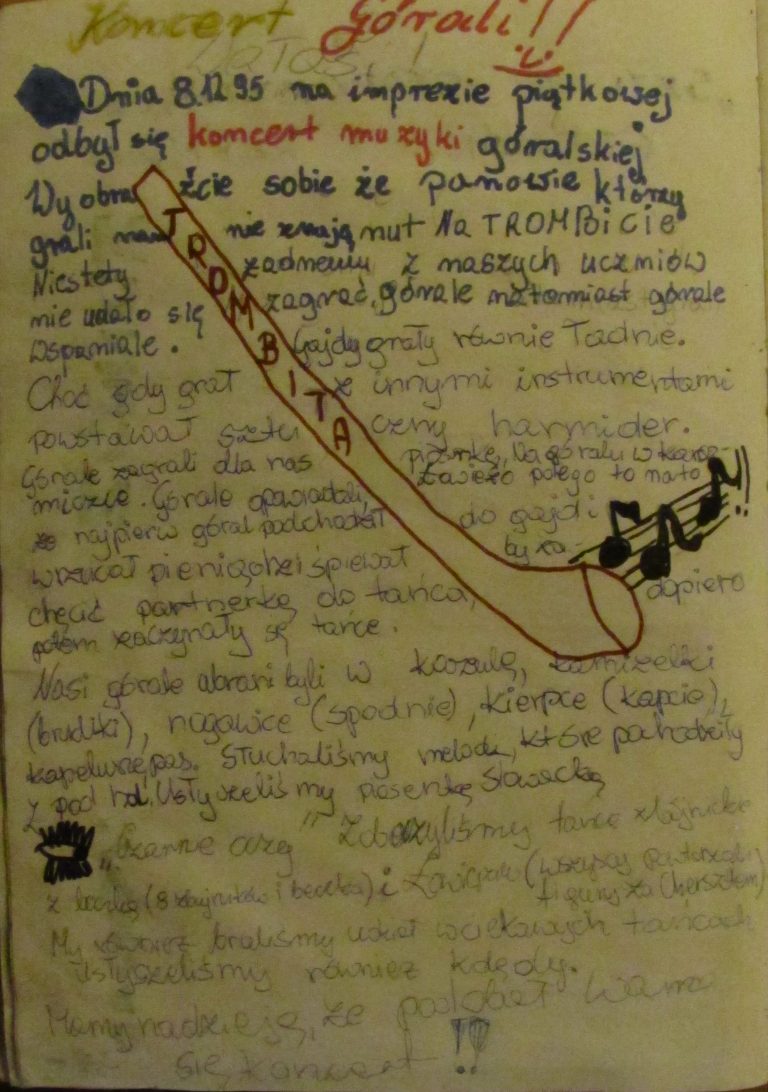 Koncert Górali!!
Dnia 8.12 95 na imprezie piątkowej
odbył się koncert muzyki góralskiej
Wyobraźcie sobie że panowie którzy
grali nam nie znają nut Na TROMBiCiE
Niestety żadnemu z naszych uczniów
nie udało się zagrać, górale natomiast górale
wspaniale. Gajdy grały równie ładnie.
Choć gdy grał z innymi instrumentami
powstawał sztuczny harmider.
Górale zagrali dla nas piosenkę, Na góralu w karcz-
miczce. Górale opowiadali,
że najpierw góral podchodził do gajd i
wrzucał pieniążek i śpiewał by za-
chęcić partnerkę do tańca, dopiero
potem zaczynały się tańce.
TROMBITA
Nasi górale ubrani byli w koszulę, kamizelki
(brudiki), nogawice (spodnie), kierpce (kapcie),
kapelusz, pas. Słuchaliśmy melodii, które pochodziły
z pod hal. Usłyszeliśmy piosenkę słowacką
„Czarne oczy" Zobaczyliśmy tańce zbójnickie
z beczką (8 zbujników i beczka) i (wszyscy powtarzali
figury za Chersztem)
My również braliśmy udział w ciekawych tańcach
Usłyszeliśmy również kolędy.
Mamy nadzieję, że podobał wam
się koncert !!